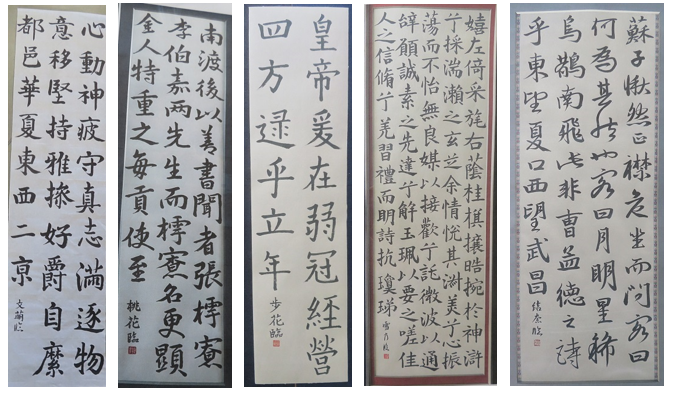 心動神疲守真志滿逐物
意移堅持雅操好爵自縻
都邑華夏東西二京
南渡後以善書聞者張樗寮
李伯嘉两先生而樗寮名更顯
金人特重之每貢使至
桃花臨
皇帝爰在弱冠經營
四方逯乎立年
步花臨
嬉左倚采旄右蔭桂旗攘皓捥於神滸
兮採湍瀨之玄芝余情悅其淑美兮心振
蕩而不怡無良媒以接歡兮託微波以通
辭願誠素之先達兮解玉珮以要之嗟佳
人之信脩兮羌習禮而明詩抗瓊珶
蘇子愀然正襟危坐而問客曰
何為其然也客曰月明星稀
烏鵲南飛此非曹孟德之詩
乎東望夏口西望武昌